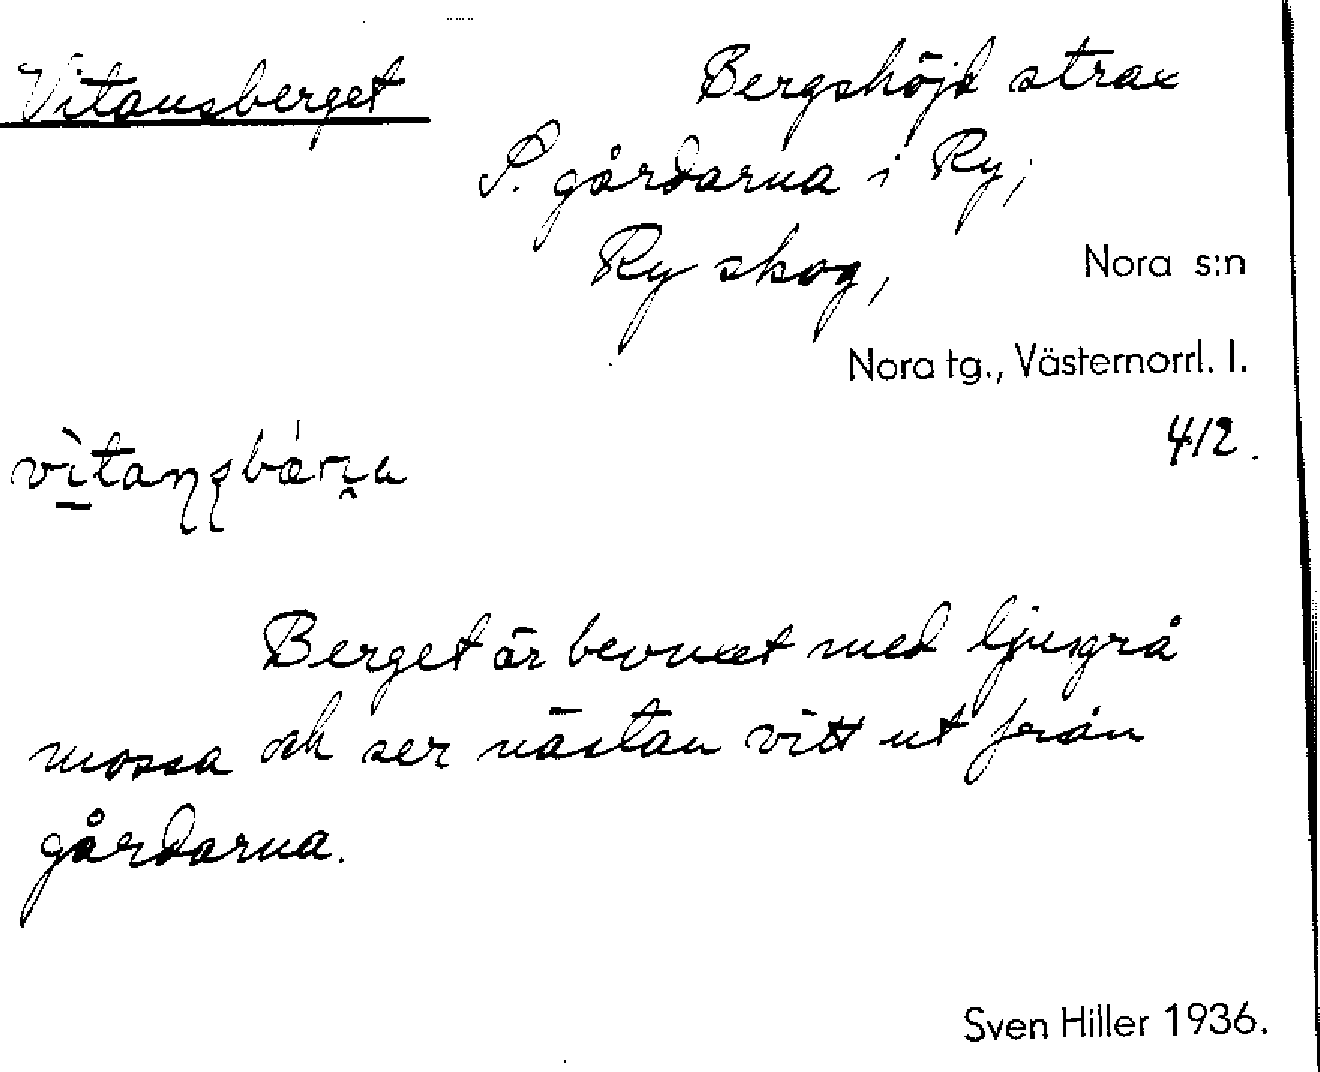 Vitansberget
Bergshöjd strax
S. gårdarna i Ry,
Ry skog,
Nora s:n
Nora tg., Västernorrl. l.
412.
Berget är bevuxet med ljusgrå
mossa och ser nästan vitt ut från
gårdarna.
Sven Hiller 1936.